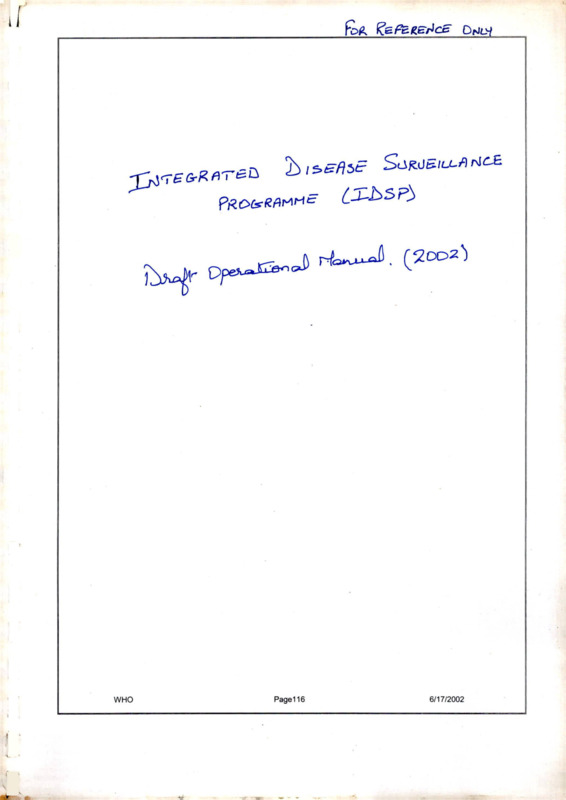 FOR REFERENCE ONLY
INTEGRATED DISEASE SURVEILLANCE
PROGRAMME (IDSP)
Draft Operational Manual. (2002)
WHO Page116 6/17/2002